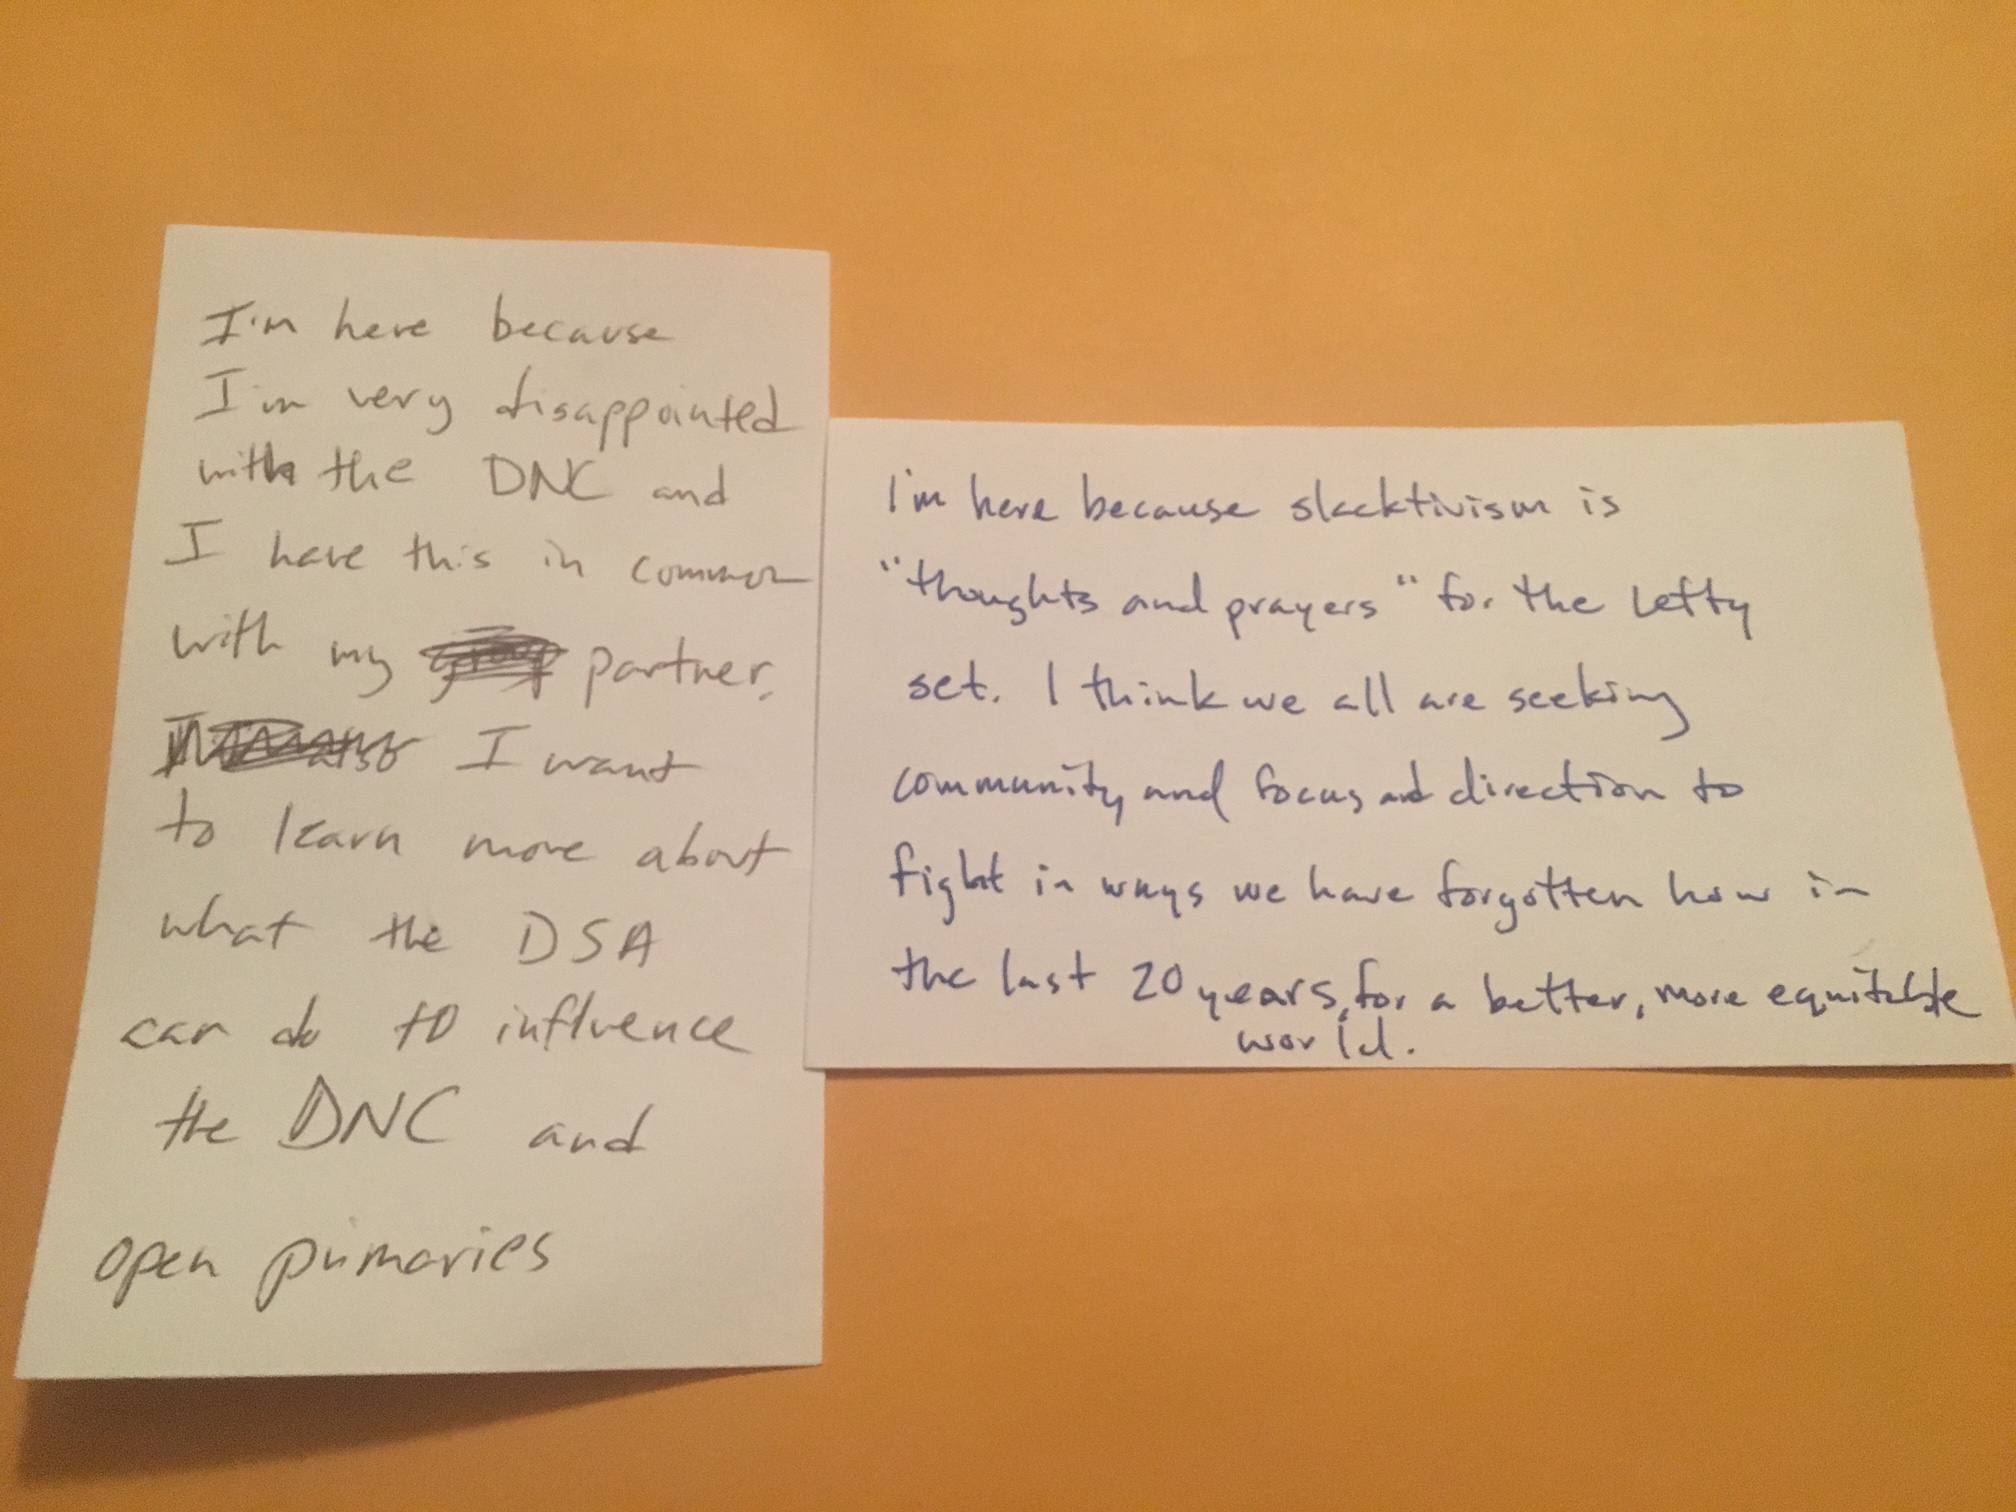 I'm here because
I'm very disappointed
with the DNC and
I have this in common
with my group partner.
also I want
to learn more about
what the DSA
can do to influence
the DNC and
open primaries
I'm here because slacktivism is
"thoughts and prayers" for the lefty
set. I think we all are seeking
community and focus and direction to
fight in ways we have forgotten how in
the last 20 years, for a better, more equitable
world.